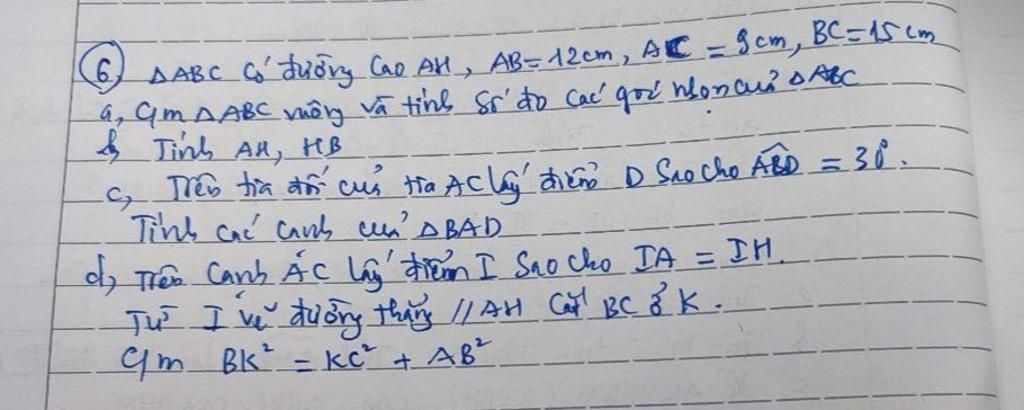 6 ΔABC có đường cao AH, AB=12cm, AC = 9cm, BC=15cm
a, Cm ΔABC vuông và tính số đo các góc nhọn của ΔABC
b, Tính AH, HB
c, Trên tia đối của tia AC lấy điểm D sao cho ABD = 30°.
Tính các cạnh của ΔBAD
d, Trên cạnh AC lấy điểm I sao cho IA = IH.
Từ I vẽ đường thẳng // AH cắt BC ở K.
Cm BK² = KC² + AB²